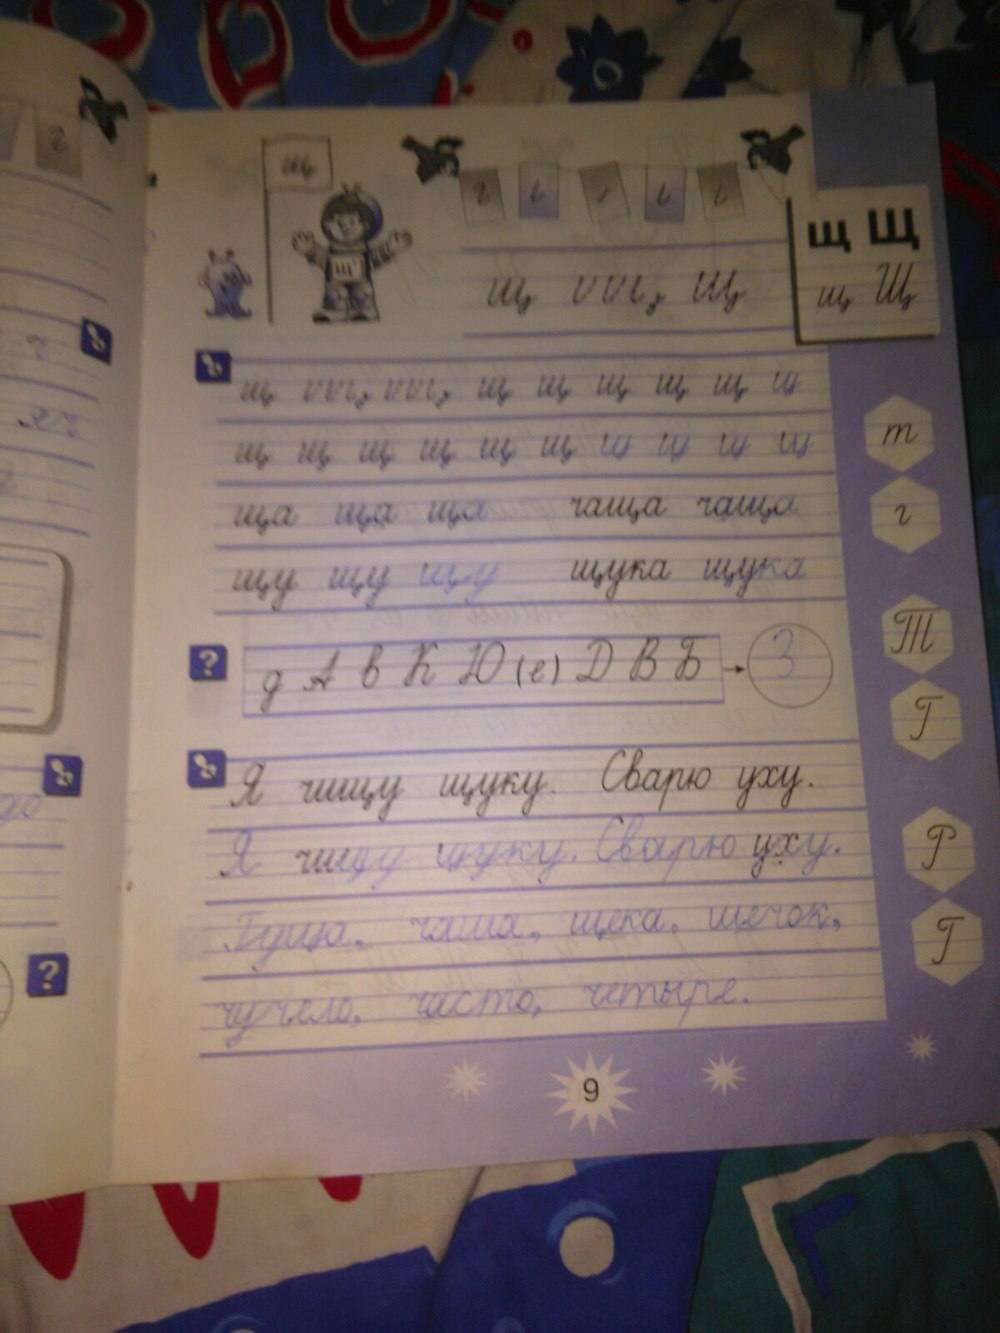 щ
щ Щ
щ Щ
щ щ
щ щ щ щ щ щ щ
щ щ щ щ щ щ щ щ щ щ
ща ща ща чаща чаща
щу щу щу щука щука
? д А в К Ю (е) Д В Б → 3
Я чищу щуку. Сварю уху.
Я чищу щуку. Сварю уху.
чаша, щека, щечок,
чучело, часто, четыре.
9
т
г
Т
Г
Р
Г
г
ч
яч
?